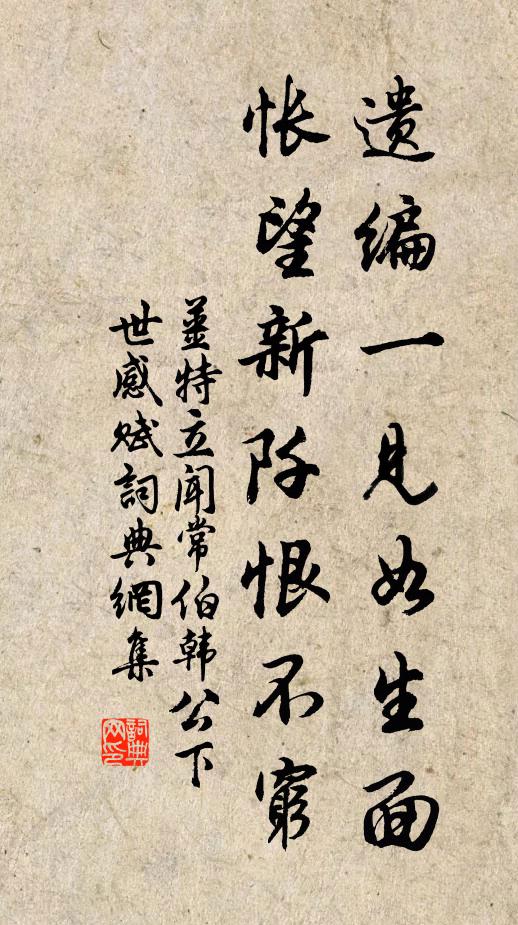 遗编一见如生面
怅望新阡恨不穷
姜特立闻常伯韩公下
世感赋詞典網集
詞典网印